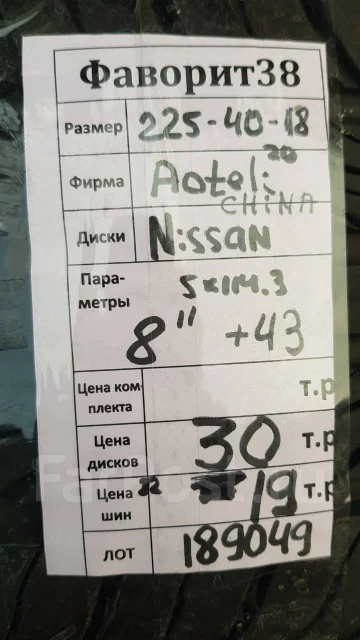 Фаворит38
Размер 225-40-18
Фирма Aoteli 20
CHINA
Диски Nissan
Пара-
метры 5x114.3
8" +43
Цена ком
плекта т.р
Цена
дисков 30 т.р
Цена
шин 19 т.р
ЛОТ 189049